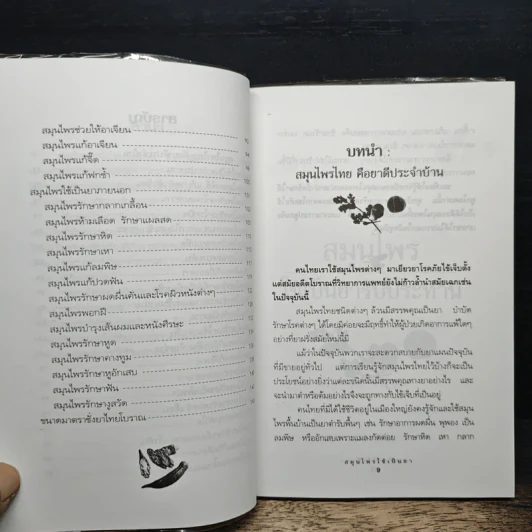 สมุนไพรช่วยให้อาเจียน
สมุนไพรแก้อาเจียน
สมุนไพรแก้ซี๊ด
สมุนไพรแก้ฟกช้ำ
สมุนไพรใช้เป็นยาภายนอก
สมุนไพรรักษากลากเกลื้อน
สมุนไพรห้ามเลือด รักษาแผลสด
สมุนไพรรักษาหิด
สมุนไพรรักษาเหา
สมุนไพรแก้ลมพิษ
สมุนไพรแก้ปวดฟัน
สมุนไพรรักษาผดผื่นคันและโรคผิวหนังต่างๆ
สมุนไพรพอกฝี
สมุนไพรบำรุงเส้นผมและหนังศีรษะ
สมุนไพรรักษาหูด
สมุนไพรรักษาคางทูม
สมุนไพรรักษาหูอักเสบ
สมุนไพรรักษาฟัน
สมุนไพรรักษางูสวัด
ขนาดมาตราชั่งยาไทยโบราณ
บทนำ :
สมุนไพรไทย คือยาดีประจำบ้าน
คนไทยเราใช้สมุนไพรต่างๆ มาเยียวยาโรคภัยไข้เจ็บตั้ง
แต่สมัยอดีตโบราณที่วิทยาการแพทย์ยังไม่ก้าวล้ำนำสมัยเฉกเช่น
ในปัจจุบันนี้
สมุนไพรไทยชนิดต่างๆ ล้วนมีสรรพคุณเป็นยา บำบัด
รักษาโรคต่างๆ ได้โดยไม่ค่อยจะมีฤทธิ์ทำให้ผู้ป่วยเกิดอาการแพ้ใดๆ
อย่างที่ยาฝรั่งสมัยใหม่นี้มี
แม้ว่าในปัจจุบันพวกเราจะสะดวกสบายกับยาแผนปัจจุบัน
ที่มีขายอยู่ทั่วไป แต่การเรียนรู้จักสมุนไพรไทยไว้บ้างก็จะเป็น
ประโยชน์อย่างยิ่งว่าแต่ละชนิดนั้นมีสรรพคุณทางยาอย่างไร และ
จะนำมาตำหรือต้มอย่างไรจึงจะถูกทางกับไข้เจ็บที่เป็นอยู่
คนไทยที่มิได้ใช้ชีวิตอยู่ในเมืองใหญ่ยังคงรู้จักและใช้สมุน
ไพรพื้นบ้านเป็นยาตำรับพื้นๆ เช่น รักษาอาการผดผื่น พุพอง เป็น
ลมพิษ หรืออักเสบเพราะแมลงกัดต่อย รักษาหิด เหา กลาก
สมุนไพรใช้เป็นยา
9